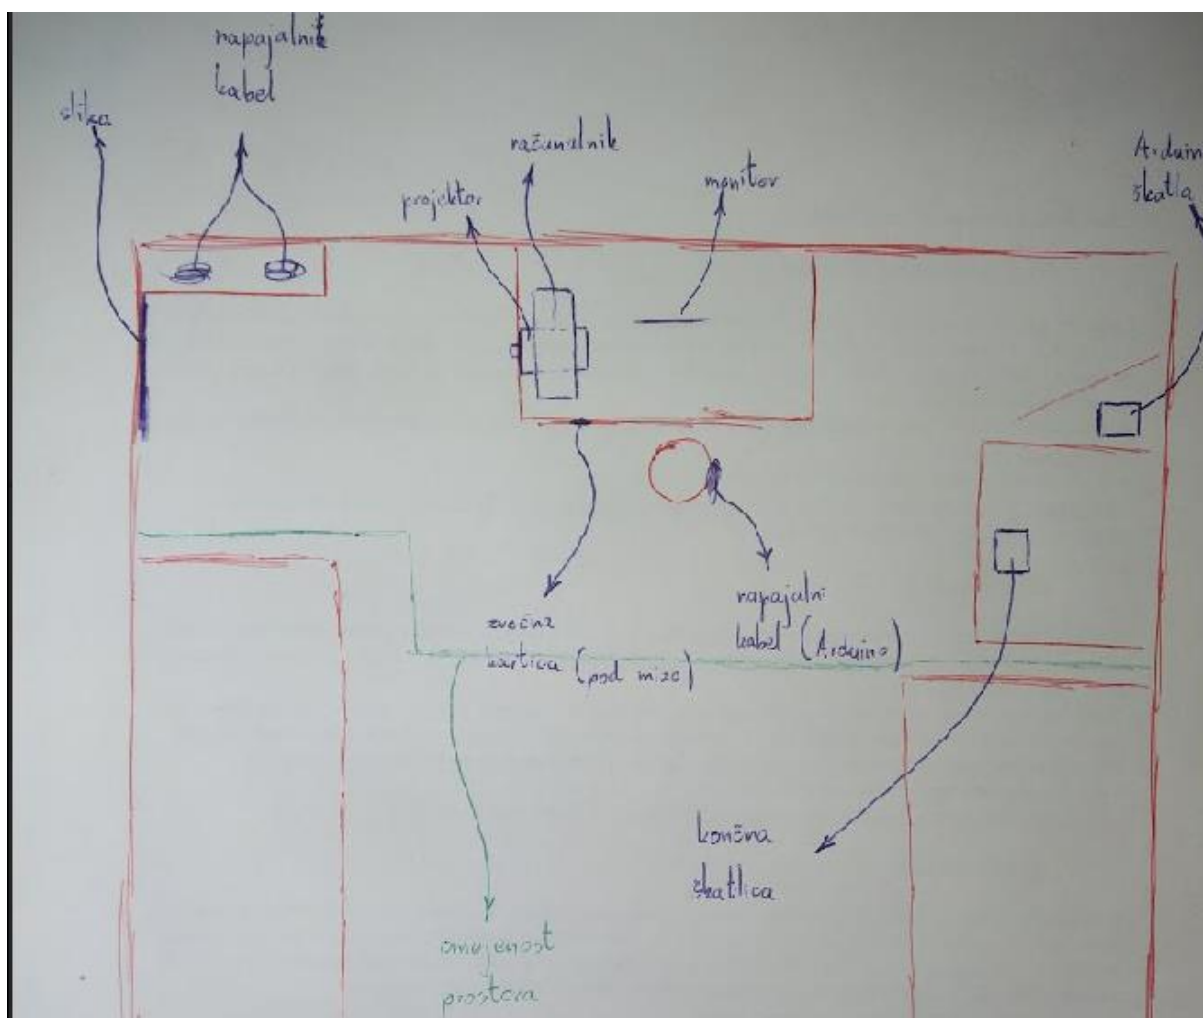 napajalnik
kabel
slika
računalnik
projektor
monitor
Arduin
škatla
zvočna
kartica (pod mizo)
napajalni
kabel (Arduino)
končna
škatlica
omejenost
prostora